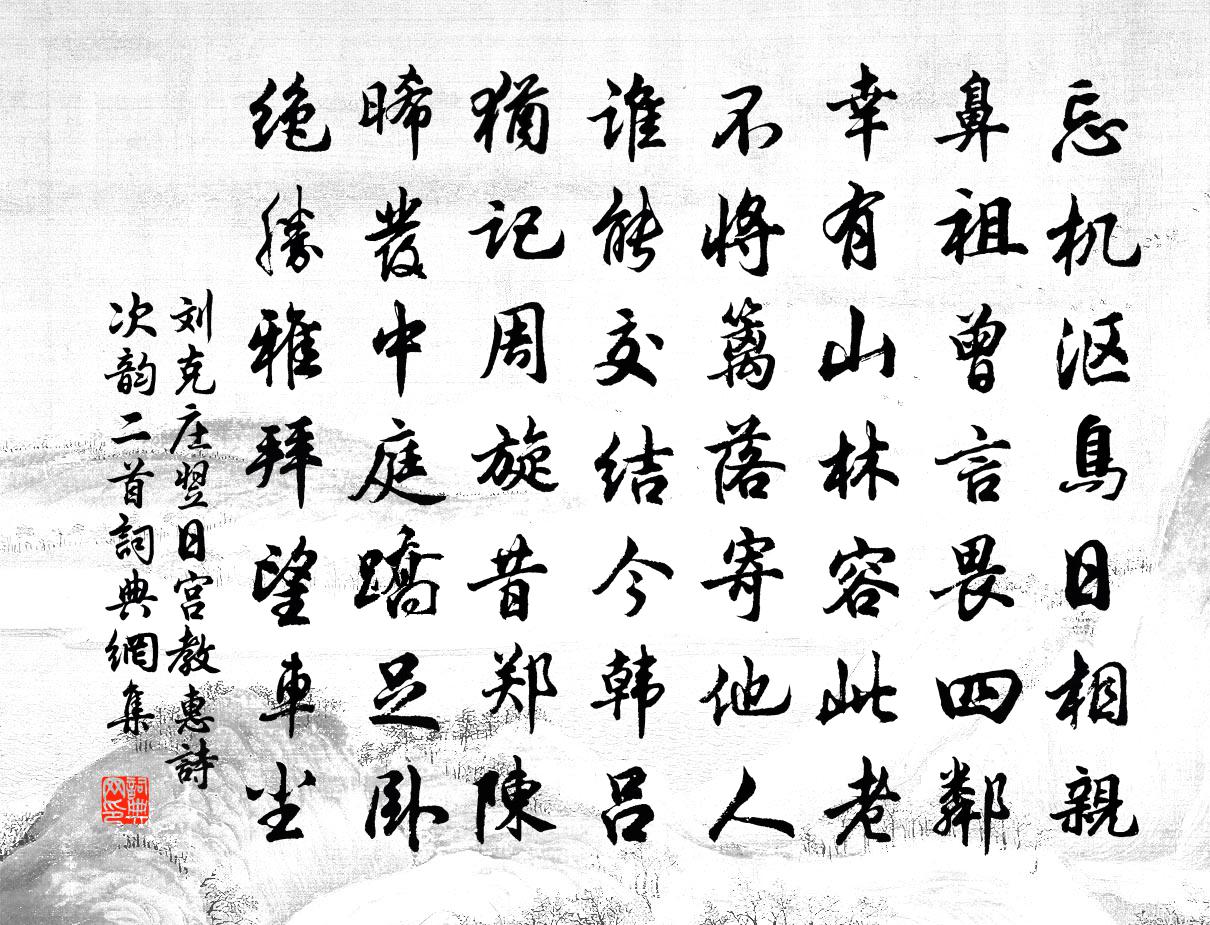 忘机沤鳥日相親
鼻祖曾言畏四鄰
幸有山林容此老
不將篱落寄他人
谁能交结今韩吕
猶记周旋昔郑陳
晞發中庭蹻足卧
绝勝雅拜望車尘
刘克庄翌日宫教惠詩
次韵二首詞典網集
詞典
网印